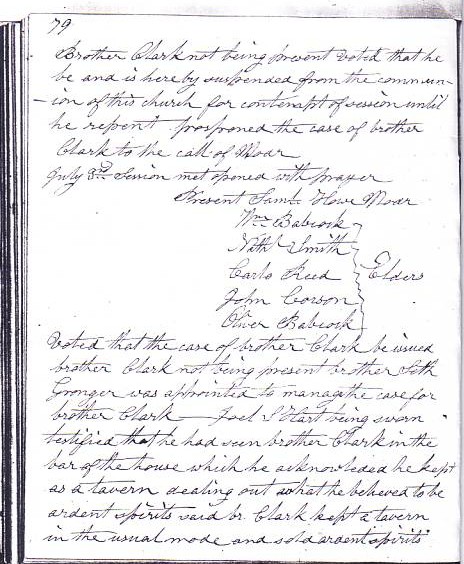 79
Brother Clark not being present voted that he
be and is hereby suspended from the commun-
-ion of this church for contempt of session until
he repent prosponed the case of brother
Clark to the call of Moar
July 3rd Session met opened with prayer
Present Saml. Howe Moar
Wm Babcock
Nathl Smith
Carlo Reed Elders
John Corson
Oliver Babcock
Voted that the case of brother Clark be issued
brother Clark not being present brother Seth
Granger was appointed to manage the case for
brother Clark — Joel S Hart being sworn
testified that he had seen brother Clark in the
bar of the house which he acknowleded he kept
as a tavern dealing out what he believed to be
ardent spirits said br. Clark kept a tavern
in the usual mode and sold ardent spirits